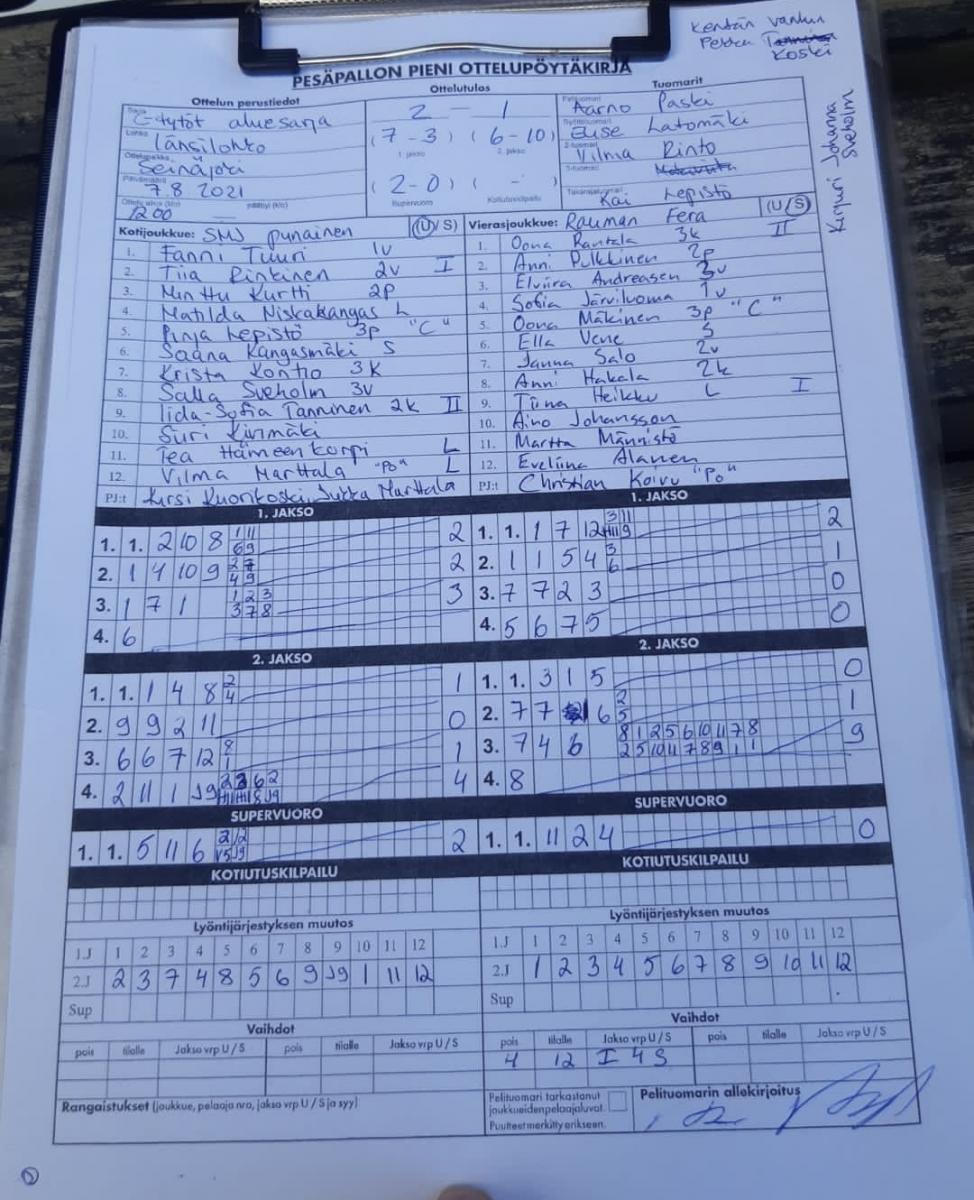 Kentän vanhin
Pekka Koski
PESÄPALLON PIENI OTTELUPÖYTÄKIRJA
Ottelun perustiedot
Ottelutulos
Tuomarit
Sarja E-tytöt aluesarja
Lohko Länsilohko
Ottelupaikka Seinäjoki
Päivämäärä 7.8 2021
Ottelu alkoi (klo) 1200 päättyi (klo)
2 - 1
(7-3) (6-10)
1. jakso 2. jakso
(2-0) ( - )
Supervuoro Kotiutuskilpailu
Pelituomari Aarno Paski
Syöttötuomari Elise Latomäki
2-tuomari Vilma Rinto
3-tuomari
Takarajatuomari Kai Lepistö
Kirjuri Johanna Sveholm
Kotijoukkue: SMJ punainen (U/S)
1. Fanni Tuuri 1v
2. Tiia Rinkinen 2v I
3. Minttu Kurtti 2p
4. Matilda Niskakangas L
5. Pinja Lepistö 3p "C"
6. Saana Kangasmäki S
7. Krista Kontio 3k
8. Salla Sveholm 3v
9. Iida-Sofia Tanninen 2k II
10. Suri Kivimäki
11. Tea Hämeenkorpi L
12. Vilma Marttala "Po" L
PJ:t Kirsi Kuorikoski, Jukka Marttala
Vierasjoukkue: Rauman Fera (U/S)
1. Oona Rantala 3k II
2. Anni Pulkkinen 2p
3. Elviira Andreasen 3v
4. Sofia Järviluoma 1v
5. Oona Mäkinen 3p "C"
6. Ella Vene S
7. Janna Salo 2v
8. Anni Hakala 2k
9. Tiina Heikku L I
10. Aino Johansson
11. Martta Männistö
12. Eveliina Alanen
PJ:t Christian Koivu "Po"
1. JAKSO
1. 1. 2 10 8 2
2. 1 4 10 9 2
3. 1 7 1 3
4. 6
1. JAKSO
1. 1. 1 7 12 2
2. 1 1 5 4 1
3. 7 7 2 3 0
4. 5 6 7 5 0
2. JAKSO
1. 1. 1 4 8 1
2. 9 9 2 11 0
3. 6 6 7 12 1
4. 2 11 1 J9 4
2. JAKSO
1. 1. 3 1 5 0
2. 7 7 6 1
3. 7 4 6 9
8 1 2 5 6 10 11 7 8
2 5 10 11 7 8 9 1 1
4. 8
SUPERVUORO
1. 1. 5 11 6 2
SUPERVUORO
1. 1. 11 2 4 0
KOTIUTUSKILPAILU
KOTIUTUSKILPAILU
Lyöntijärjestyksen muutos
1.J 1 2 3 4 5 6 7 8 9 10 11 12
2.J 2 3 7 4 8 5 6 9 J9 1 11 12
Sup
Lyöntijärjestyksen muutos
1.J 1 2 3 4 5 6 7 8 9 10 11 12
2.J 1 2 3 4 5 6 7 8 9 10 11 12
Sup
Vaihdot
pois tilalle Jakso vrp U / S pois tilalle Jakso vrp U / S
Vaihdot
pois tilalle Jakso vrp U / S pois tilalle Jakso vrp U / S
4 12 I 4 S
Rangaistukset (joukkue, pelaaja nro, jakso vrp U / S ja syy)
Pelituomari tarkastanut
joukkueidenpelaajaluvat.
Puutteet merkitty erikseen.
Pelituomarin allekirjoitus